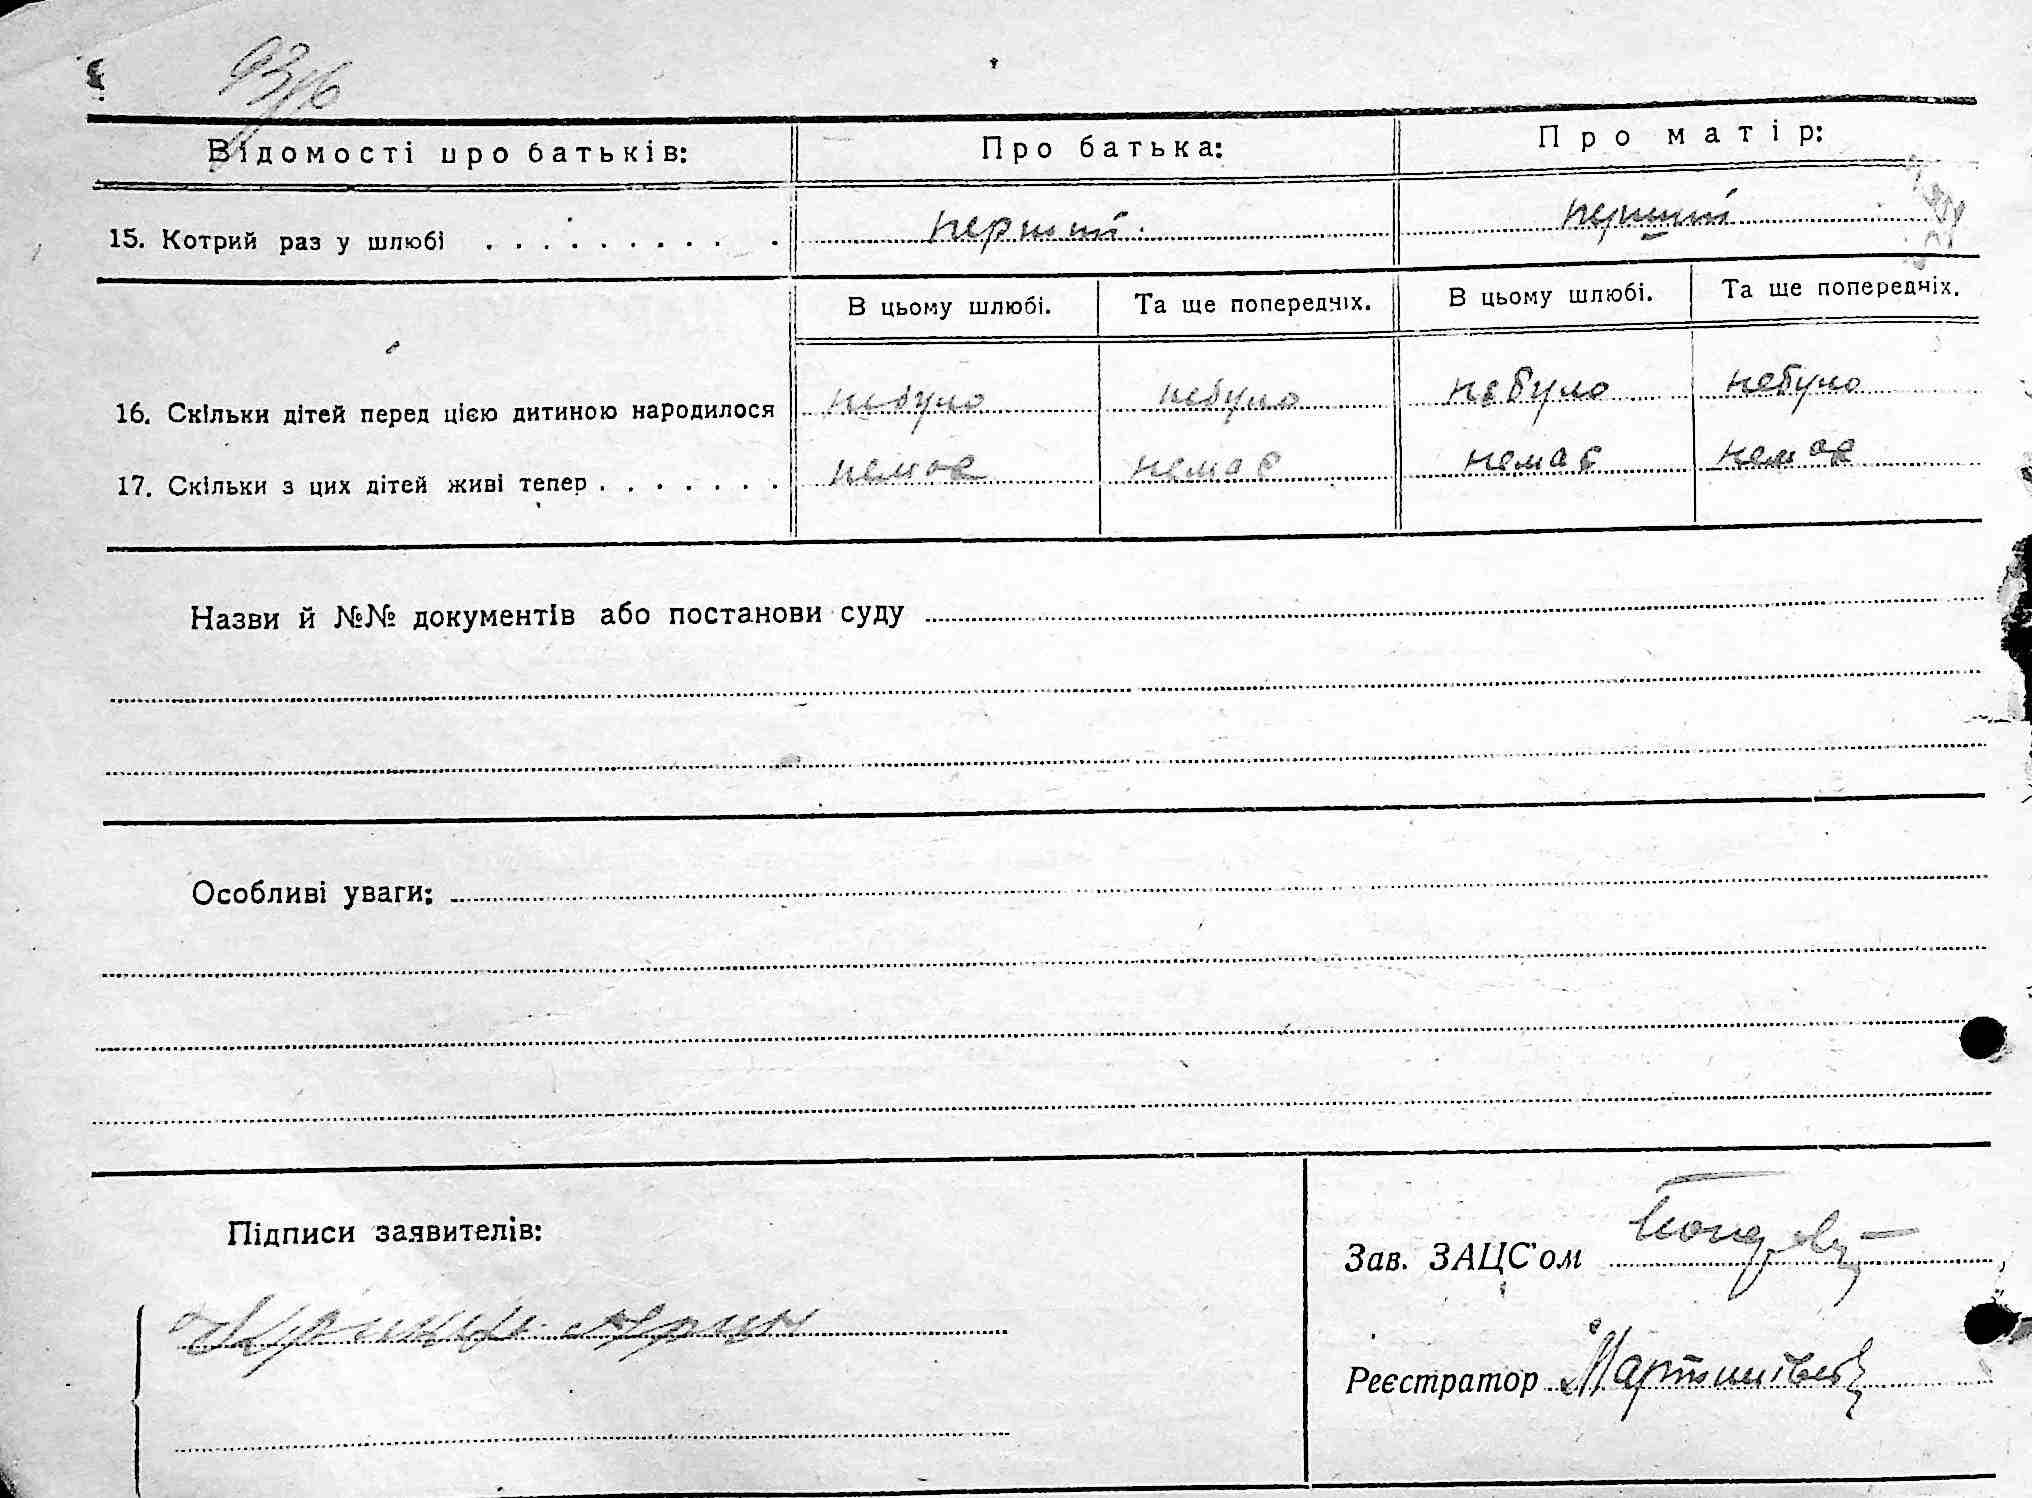 Відомості про батьків: Про батька: Про матір:
15. Котрий раз у шлюбі . . . . . . . . . . . перший. перший
В цьому шлюбі. Та ще попередніх. В цьому шлюбі. Та ще попередніх.
16. Скільки дітей перед цією дитиною народилося небуло небуло небуло небуло
17. Скільки з цих дітей живі тепер . . . . . . . немає немає немає немає
Назви й №№ документів або постанови суду
Особливі уваги:
Підписи заявителів:
Зав. ЗАЦС'ом
Реєстратор